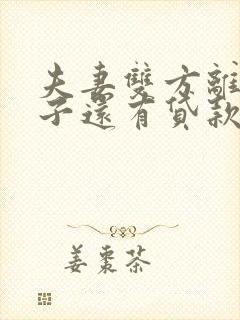 夫妻雙方離
子還有貸款
姜棗茶